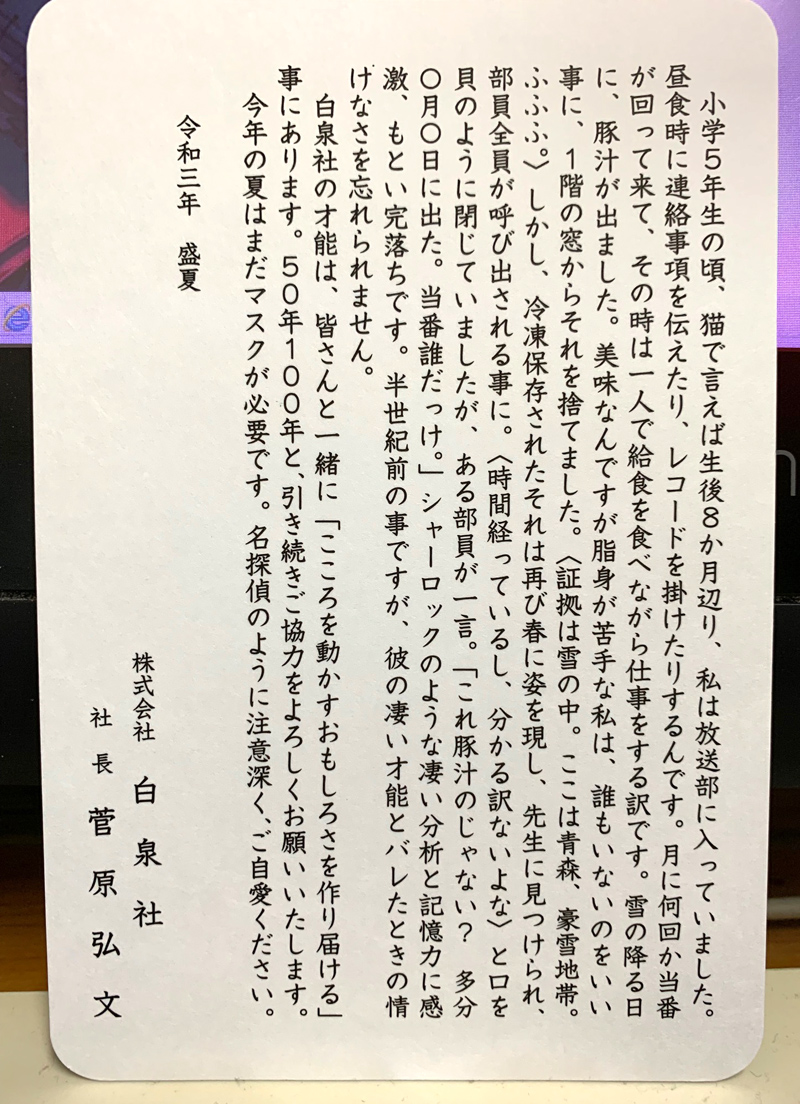 小学５年生の頃、猫で言えば生後８か月辺り、私は放送部に入っていました。
昼食時に連絡事項を伝えたり、レコードを掛けたりするんです。月に何回か当番
が回って来て、その時は一人で給食を食べながら仕事をする訳です。雪の降る日
に、豚汁が出ました。美味なんですが脂身が苦手な私は、誰もいないのをいい
事に、１階の窓からそれを捨てました。〈証拠は雪の中。ここは青森、豪雪地帯。
ふふふ。〉しかし、冷凍保存されたそれは再び春に姿を現し、先生に見つけられ、
部員全員が呼び出される事に。〈時間経っているし、分かる訳ないよな〉と口を
貝のように閉じていましたが、ある部員が一言。「これ豚汁のじゃない？　多分
〇月〇日に出た。当番誰だっけ。」シャーロックのような凄い分析と記憶力に感
激、もとい完落ちです。半世紀前の事ですが、彼の凄い才能とバレたときの情
けなさを忘れられません。
白泉社の才能は、皆さんと一緒に「こころを動かすおもしろさを作り届ける」
事にあります。５０年１００年と、引き続きご協力をよろしくお願いいたします。
今年の夏はまだマスクが必要です。名探偵のように注意深く、ご自愛ください。
令和三年　盛夏
株式会社　白泉社
社長　菅原弘文